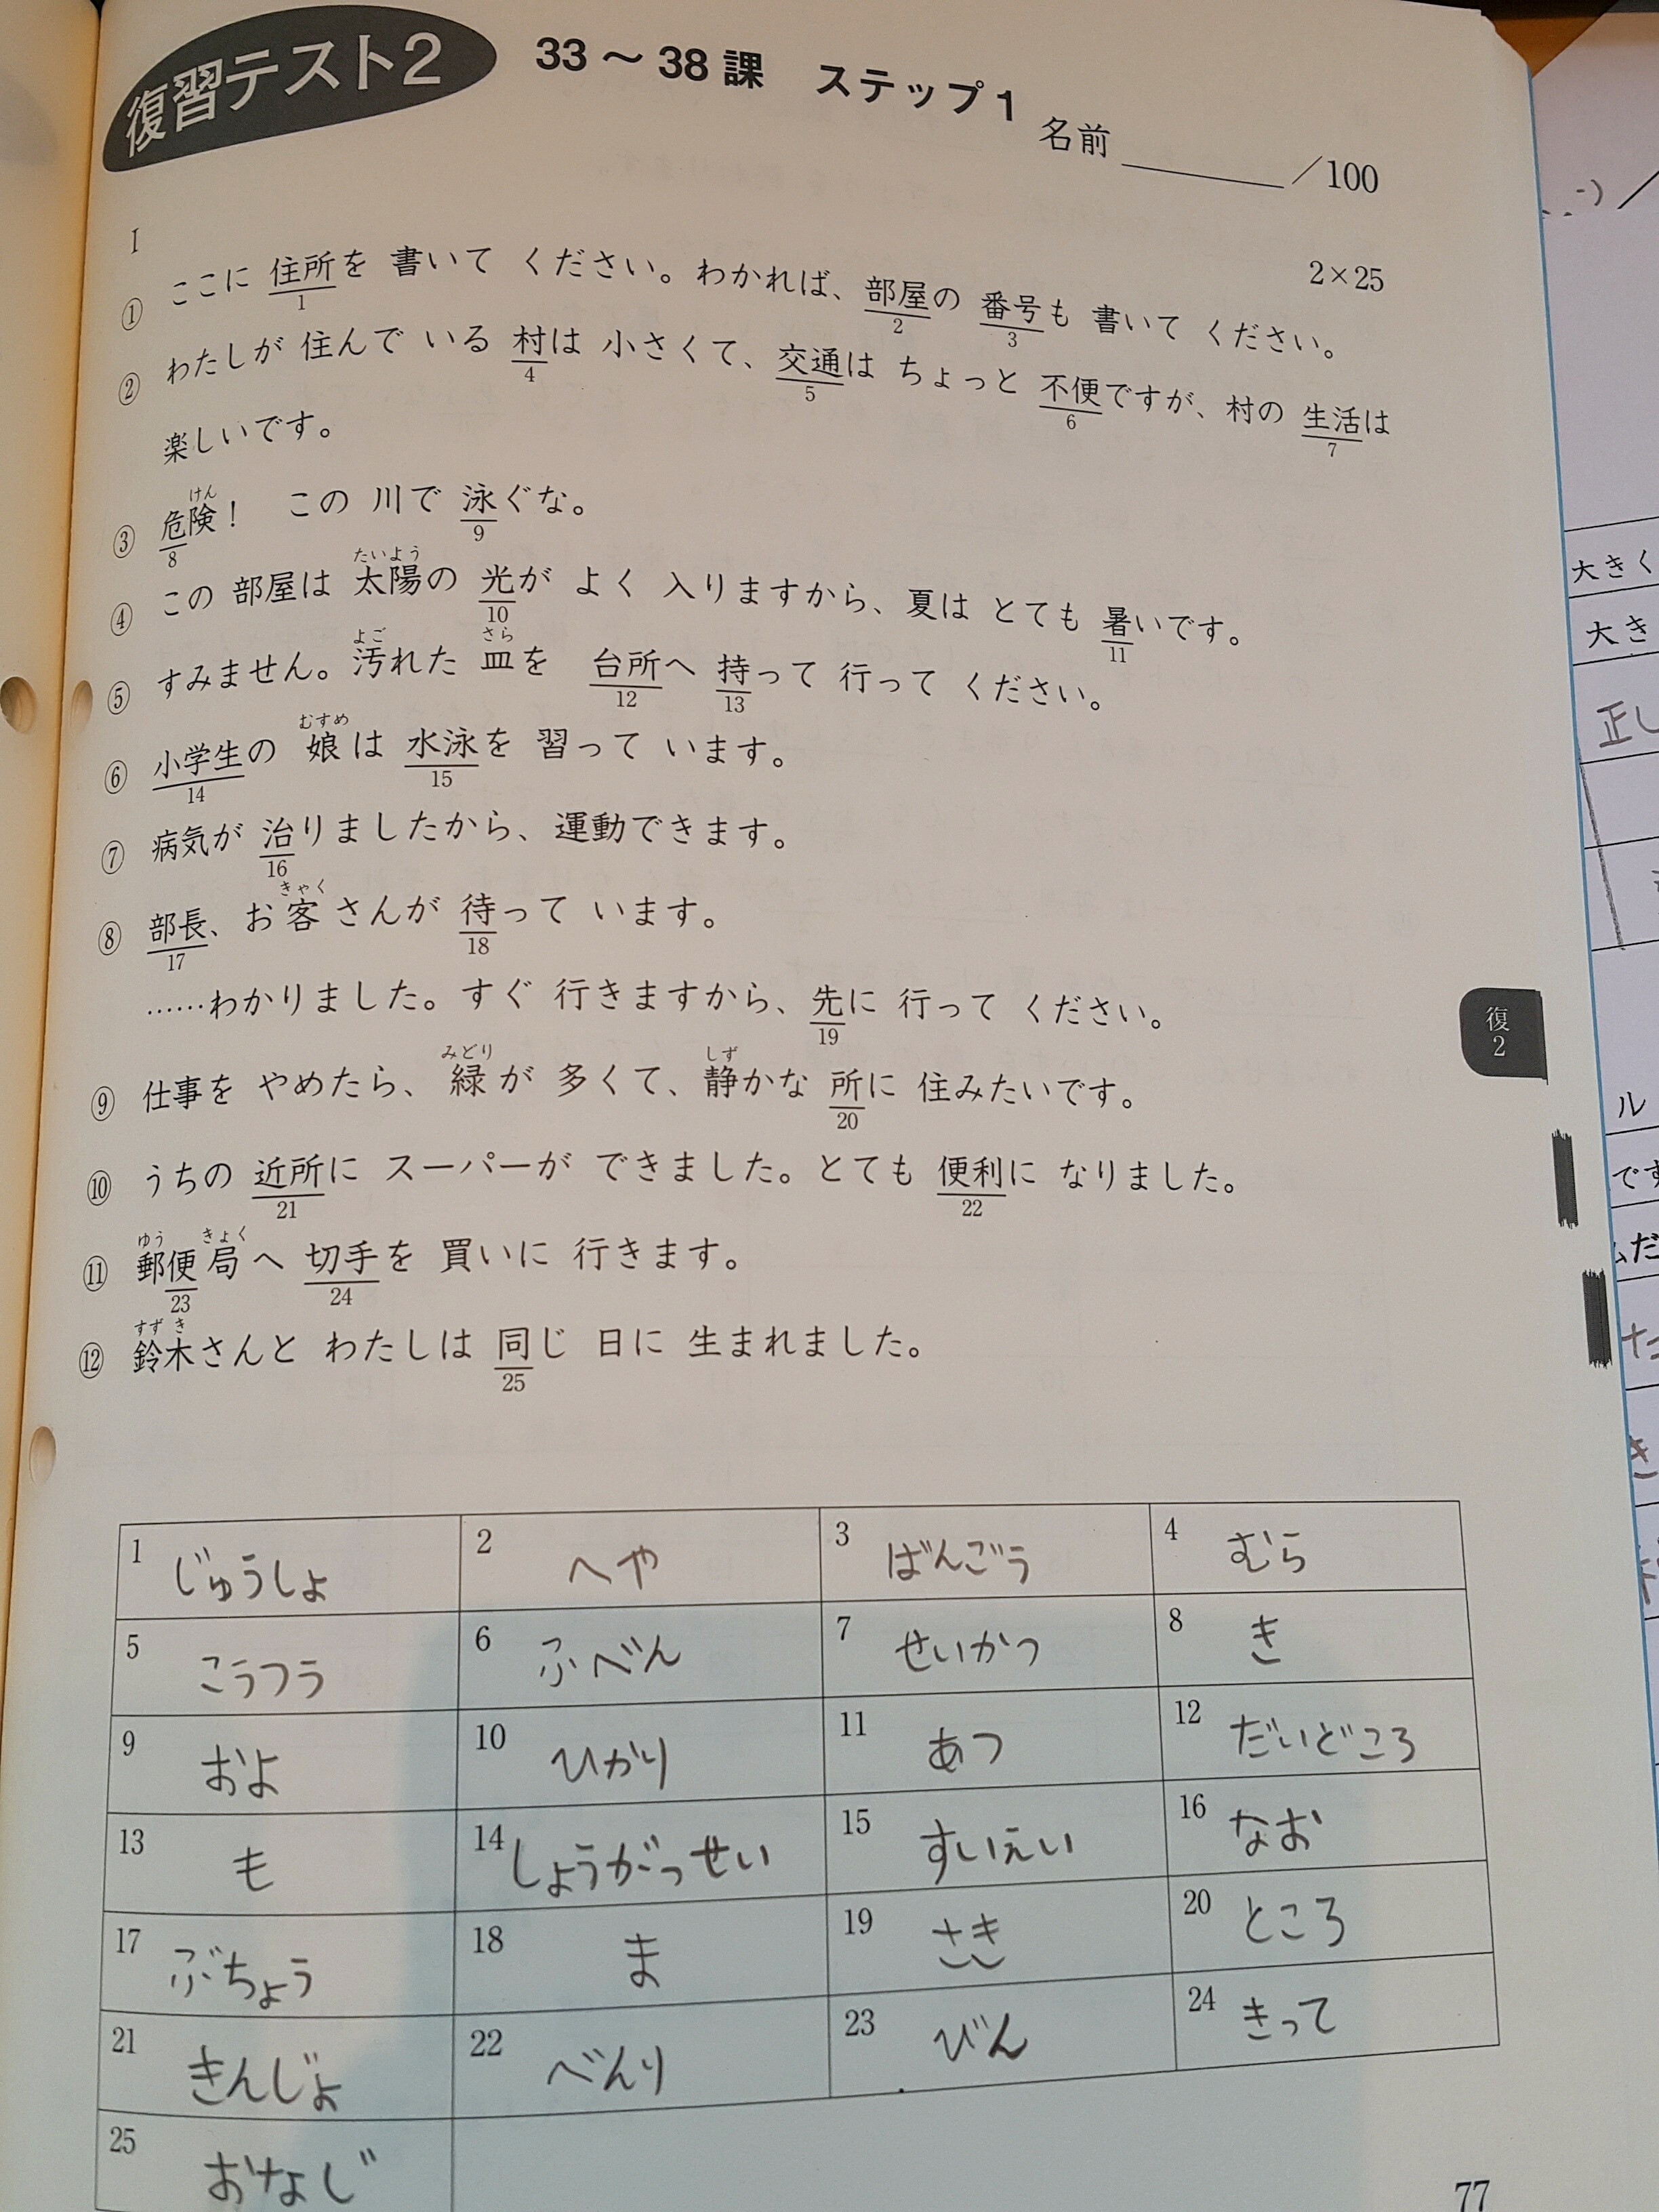 復習テスト2 33～38課 ステップ1
名前 ／100
I
2×25
① ここに 住所を 書いて ください。わかれば、部屋の 番号も 書いて ください。
1 2 3
② わたしが 住んで いる 村は 小さくて、交通は ちょっと 不便ですが、村の 生活は
4 5 6 7
楽しいです。
けん
③ 危険！ この 川で 泳ぐな。
8 9
たいよう
④ この 部屋は 太陽の 光が よく 入りますから、夏は とても 暑いです。
10 11
よご さら
⑤ すみません。汚れた 皿を 台所へ 持って 行って ください。
12 13
むすめ
⑥ 小学生の 娘は 水泳を 習って います。
14 15
⑦ 病気が 治りましたから、運動できます。
16
きゃく
⑧ 部長、お客さんが 待って います。
17 18
……わかりました。すぐ 行きますから、先に 行って ください。
19
みどり しず
⑨ 仕事を やめたら、緑が 多くて、静かな 所に 住みたいです。
20
⑩ うちの 近所に スーパーが できました。とても 便利に なりました。
21 22
ゆう きょく
⑪ 郵便局へ 切手を 買いに 行きます。
23 24
すず き
⑫ 鈴木さんと わたしは 同じ 日に 生まれました。
25
1 じゅうしょ 2 へや 3 ばんごう 4 むら
5 こうつう 6 ふべん 7 せいかつ 8 き
9 およ 10 ひかり 11 あつ 12 だいどころ
13 も 14 しょうがっせい 15 すいえい 16 なお
17 ぶちょう 18 ま 19 さき 20 ところ
21 きんじょ 22 べんり 23 びん 24 きって
25 おなじ
77
復2
大きく
大き
正し
ル
です